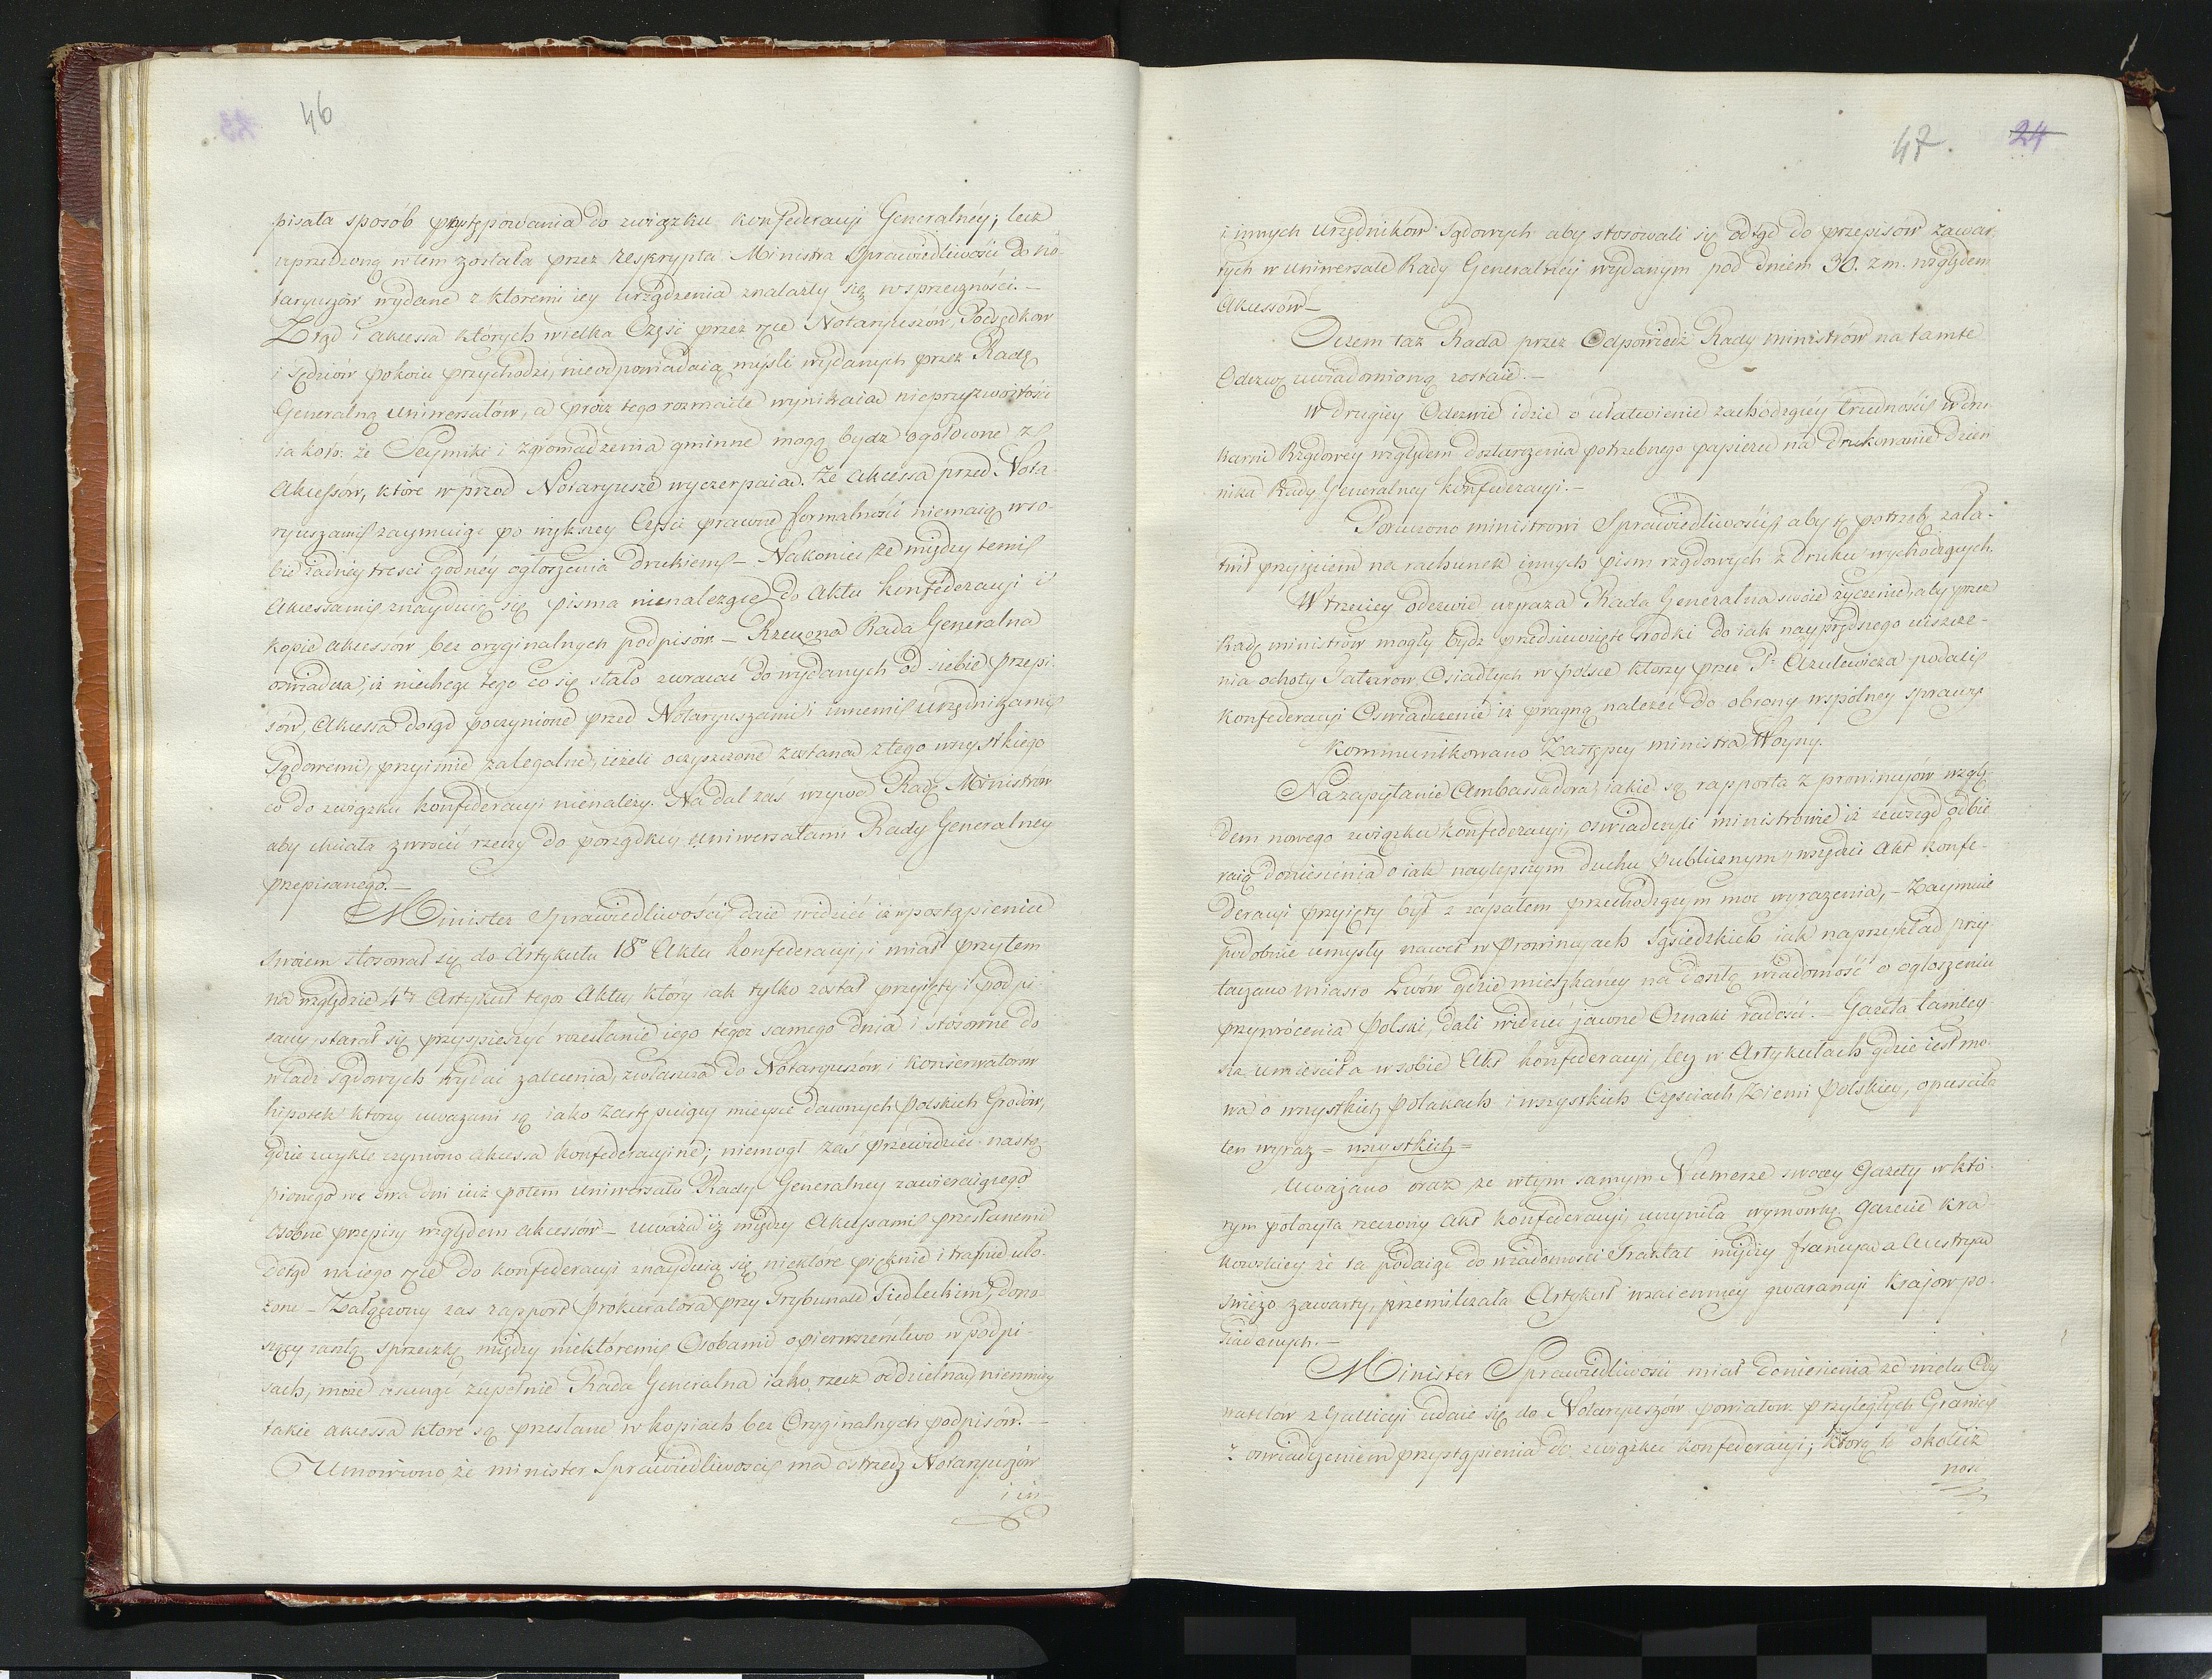 46
pisała sposób przystępowania do związku konfederacyi Generalnéy; lecz
uprzedzoną w tem została przez reskrypta Ministra Sprawiedliwości do No-
taryuszów wydane z ktoremi iey urządzenia znalazły się w sprzeczności. —
Ztąd i akcessa których wielka Część przez ręce Notaryuszów, Podsędków
i Sędziów pokoiu przychodzi, nieodpowiadaią myśli wydanych przez Radę
Generalną Uniwersałów, a prócz tego rozmaite wynikaią nieprzyzwoitości
iakoto: że Seymiki i zgromadzenia gminne mogą bydź ogołocone z
Akcessów, które wprzód Notaryusze wyczerpaią. Że akcessa przed Nota-
ryuszami zaymuiąc po większey Części prawne formalności niemaią w so-
bie żadney tresci godnéy ogłoszenia drukiem — Nakoniec że między temi
Akcessami znayduią się pisma nienależące do Aktu konfederacyi i
kopie akcessów bez oryginalnych podpisów — Rzeczona Rada Generalna
oswiadcza, iż niechcąc tego co się stało zwracać do wydanych od siebie przepi-
sów, Akcessa dotąd poczynione przed Notaryuszami i innemi urzędnikami
Sądowemi, przyimie za legalne, ieżeli oczyszczone zostaną z tego wszystkiego
co do związku konfederacyi nienależy. Nadal zaś wzywa Radę Ministrów
aby chciała zwrócić rzeczy do porządku uniwersałami Rady Generalney
przepisanego. —
Minister Sprawiedliwości daie widzieć iż w postąpieniu
swoiem stosował się do Artykułu 18º Aktu konfederacyi, i miał przytem
na względzie 4ty Artykuł tegoż Aktu, który iak tylko został przyięty i podpi-
sany, starał się przyspieszyć rozesłanie iego tegoż samego dnia i stósowne do
władz sądowych wydać zalecenia, zwłaszcza do Notaryuszów i konserwatorów
hipotek ktorzy uważani są iako zastępuiący mieysce dawnych Polskich Grodów,
gdzie zwykle czyniono akcessa konfederacyine; niemogł zaś przewidzieć nastą-
pionego we dwa dni iuż potem uniwersału Rady Generalney zawieraiącego
osobne przepisy względem akcessów — uważa iż między Akcessami przesłanemi
dotąd na iego ręce do konfederacyi znayduią się niektóre pięknie i trafnie uło-
żone — Załączony zas rapport Prokuratora przy Trybunale Siedleckim, dono-
szący zaszłą sprzeczkę między niektóremi Osobami o pierwszeństwo w podpi-
sach, może usunąć zupełnie Rada Generalna iako rzecz oddzielną niemniey
takie akcessa ktore są przesłane w kopiach bez Oryginalnych podpisów. —
Umówiono że minister Sprawiedliwosci ma ostrzedz Notaryuszów
i in-
47. 24
i innych urzędników Sądowych aby stosowali się odtąd do przepisów zawar-
tych w uniwersale Rady Generalnéy wydanym pod dniem 30. z. m. względem
Akcessów —
Oczem taż Rada przez Odpowiedź Rady ministrów na tamtę
Odezwę uwiadomioną zostaie. —
W drugiey Odezwie idzie o ułatwienie zachodzącéy trudności w dru-
karni Rządowey względem dostarczenia potrzebnego papieru na drukowanie dzien-
nika Rady Generalney konfederacyi. —
Poruczono ministrowi Sprawiedliwości, aby tę potrzebę zała-
twił przyięciem na rachunek innych pism rządowych z druku wychodzących.
W trzeciey odezwie wyraża Rada Generalna swoie życzenie, aby przez
Radę ministrów mogły bydź przedsiewzięte środki do iak nayprędszego uiszcze-
nia ochoty Tatarów, Osiadłych w Polsce ktorzy przez P. Azulewicza podali
Konfederacyi Oswiadczenie iż pragną należeć do obrony wspólney sprawy.
Kommunikowano Zastępcy ministra Woyny.
Na zapytanie Ambassadora, iakie są rapporta z prowincyów wzglę-
dem nowego związku konfederacyi, oswiadczyli ministrowie iż zewsząd odbie-
raią doniesienia o iak naylepszym duchu Publicznym, wszędzie Akt konfe-
deracyi przyięty był z zapałem przechodzącym moc wyrażenia, — Zaymuie
podobnie umysły nawet w Prowincyach Sąsiedzkich iak naprzykład przy-
taczano miasto Lwów gdzie mieszkańcy na doszłą wiadomość o ogłoszeniu
przywrócenia Polski, dali widzieć jawne Oznaki radości. — Gazeta tamtey-
sza umieściła w sobie Akt konfederacyi, lecz w Artykułach gdzie iest mo-
wa o wszystkich Polakach i wszystkich Częściach Ziemi Polskiey, opuściła
ten wyraz = wszystkich =
Uważano oraz że w tym samym Numerze swoiey Gazety w któ-
rym położyła rzeczony Akt konfederacyi, uczyniła wymówkę Gazecie Kra-
kowskiey że ta podaiąc do wiadomosci Traktat między Francyą a Austryą
świeżo zawarty, przemilczała Artykuł wzaiemney gwarancyi Krajów po-
siadanych. —
Minister Sprawiedliwosci miał doniesienia że wielu Oby-
watelów z Gallicyi udaie się do Notaryuszów powiatów przyległych Granicy
z oswiadczeniem przystąpienia do związku konfederacyi; którą to okolicz-
nosc